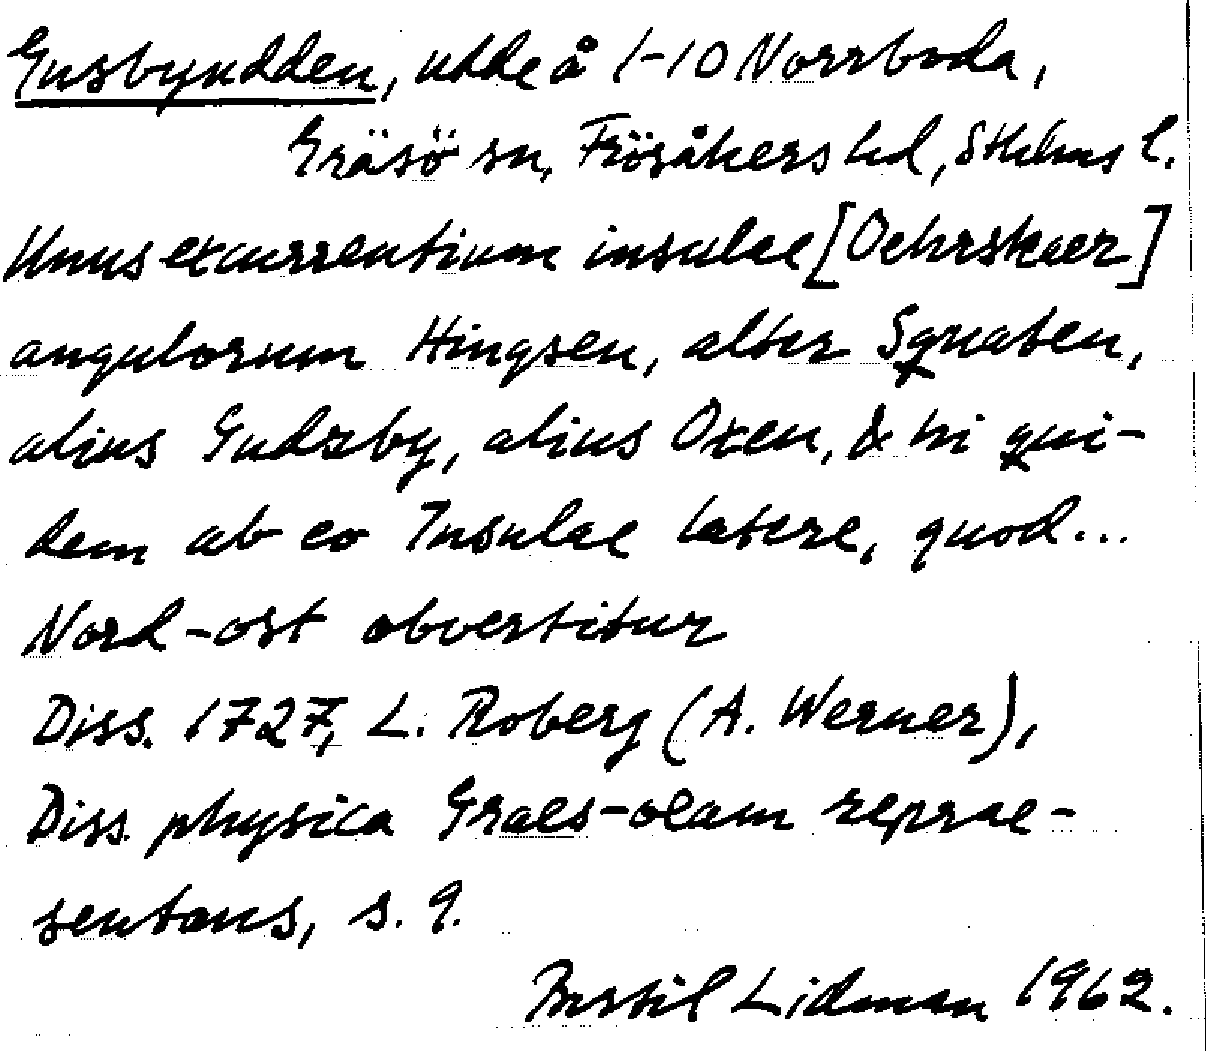 Gusbyudden, udde å 1-10 Norrboda,
Gräsö sn, Frösåkers hd, Sthlms l.
Unus excurrentium insulae [Oehrskaer]
angulorum Hingsen, alter Squaten,
alius Gudzby, alius Oxen, & hi qui-
dem ab eo Insulae latere, quod...
Nord-ost obvertitur
Diss. 1727, L. Roberg (A. Werner),
Diss. physica Graes-oeam reprae-
sentans, s. 9.
Bertil Lidman 1962.